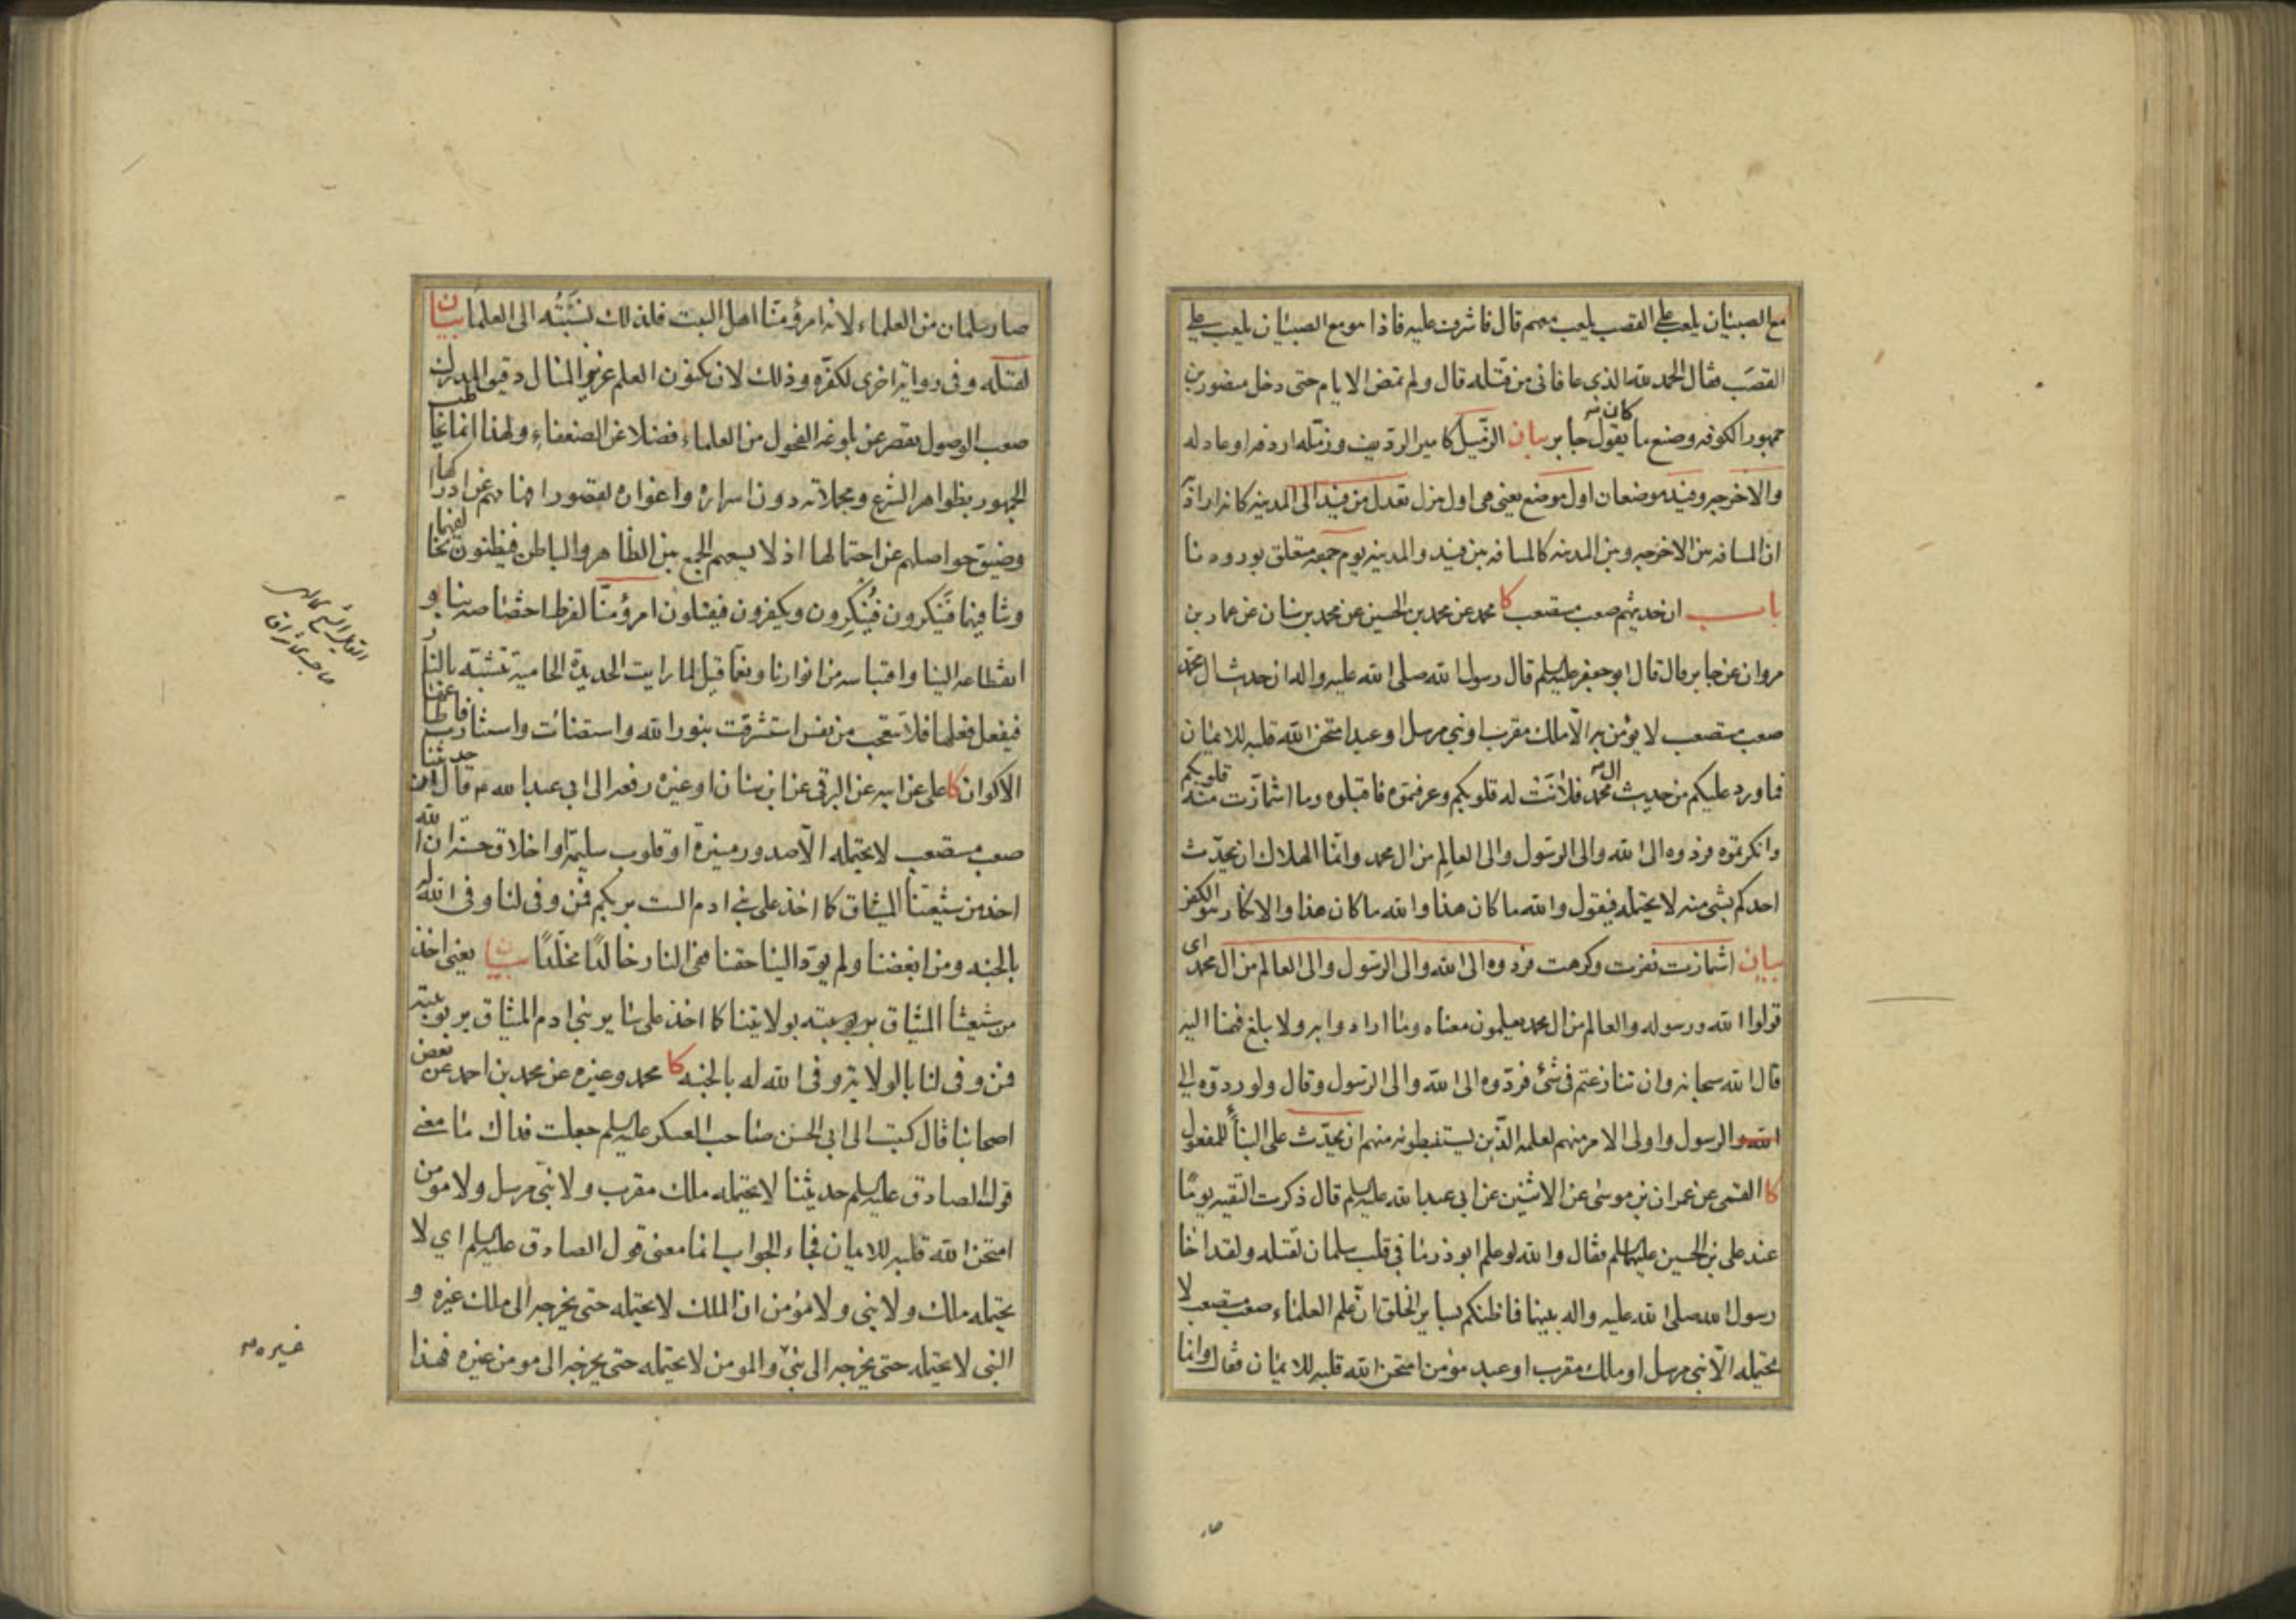 مع الصبيان يلعب على القصب يلعب معهم قال فاشرفت عليه فاذا هو مع الصبيان يلعب على
القصب فقال الحمد لله الذي عافاني من قتله قال ولم تمض الايام حتى دخل منصور بن
جمهور الكوفه وصنع ما كان يقول جابر بيان الزّميل كامير الرديف وزمله اردفه او عادله
والاخرجه وفيد موضعان اول موضع يعني هي اول منزل تعدل من فيد الى المدينه كانه اراد
ان المسافه بين الاخرجه وبين المدينه كالمسافه بين فيد والمدينه يوم جمعه متعلق بوروده نا
باب ان حديثهم صعب مستصعب كا محمد عن محمد بن الحسين عن محمد بن سنان عن عمار بن
مروان عن جابر قال قال ابو جعفر عليه السلم قال رسول الله صلى الله عليه واله ان حديث ال محمد
صعب مستصعب لا يؤمن به الّا ملك مقرب او نبي مرسل او عبد امتحن الله قلبه للايمان
فما ورد عليكم من حديث ال محمد فلانت له قلوبكم وعرفتموه فاقبلوه وما اشمأزت منه قلوبكم
وانكرتموه فردوه الى الله والى الرسول والى العالِم من ال محمد وانما الهلاك ان يحدّث
احدكم بشئ منه لا يحتمله فيقول والله ما كان هذا والله ما كان هذا والانكار هو الكفر
بيان اشمازت نفرت وكرهت فردوه الى الله والى الرسول والى العالم من ال محمد اى
قولوا الله ورسوله والعالم من ال محمد يعلمون معناه وما ارادوا به ولا بلغ فهمنا اليه
قال الله سبحانه وان تنازعتم فى شئ فردّوه الى الله والى الرسول وقال ولو ردوّه الى
الله والرسول واولى الامر منهم لعلمه الذين يستنبطونه منهم ان يحدّث على البنأ للمفعول
كا القمى عن عمران بن موسى عن الاثنين عن ابى عبد الله عليه السلم قال ذكرت التقيه يومًا
عند على بن الحسين عليهما السلم فقال والله لو علم ابوذر ما فى قلب سلمان لقتله ولقد اخا
رسول الله صلى الله عليه واله بينهما فما ظنكم بساير الخلق انّ علم العلماء صعب مستصعب لا
يحتمله الّا نبى مرسل او ملك مقرب او عبد مؤمن امتحن الله قلبه للايمان فقال وانما
صار سلمان من العلماء لانه امرؤ منّا اهل البيت فلذلك نسبته الى العلما بيان
لقتله وفى رواية اخرى لكفّره وذلك لان مكنون العلم عزيز المنال دقيق المدرك
صعب الوصول يقصر عن بلوغه الفحول من العلماء فضلا عن الضعفاء ولهذا انما يخاطب
الجمهور بظواهر الشرع ومجملاته دون اسراره واغواره لقصور افهامهم عن ادراكها
وضيق حواصلهم عن احتمالها اذ لا يسعهم الجمع بين الظاهر والباطن فيظنون تخالفهما
وتنافيهما فينكرون فيُنكِرون ويكفرون فيقتلون امرؤ منّا لفرط اختصاصه بنا و
انقطاعه الينا واقتباسه من انوارنا ونعمّا قيل لما رايت الحديدة الحامية تتشبه بالنار
فيفعل فعلها فلا تتعجب من نفس استشرقت بنور الله واستضائت واستنارت فاطاعتها
الاكوان كا على عن ابيه عن البرقى عن ابن سنان او غيره رفعه الى ابي عبد الله ع قال ان حديثنا
صعب مستصعب لا يحتمله الّا صدور منيرة او قلوب سليمة او اخلاق حسنة ان الله
اخذ من شيعتنا الميثاق كما اخذ على بنى ادم الست بربكم فمن وفى لنا وفى الله له
بالجنه ومن ابغضنا ولم يؤدّ الينا حقنا ففى النار خالدًا مخلّدًا بيان يعنى اخذ
من شيعتنا الميثاق بولايتنا كما اخذ على ساير بنى ادم الميثاق بربوبيته
فمن وفى لنا بالولاية وفى الله له بالجنه كا محمد وغيره عن محمد بن احمد عن بعض
اصحابنا قال كتبت الى ابى الحسن صاحب العسكر عليه السلم جعلت فداك ما معنى
قول الصادق عليه السلم حديثنا لا يحتمله ملك مقرب ولا نبى مرسل ولا مومن
امتحن الله قلبه للايمان فجاء الجواب انما معنى قول الصادق عليه السلم اي لا
يحتمله ملك ولا نبى ولا مؤمن ان الملك لا يحتمله حتى يخرجه الى ملك غيره و
النبى لا يحتمله حتى يخرجه الى نبى والمومن لا يحتمله حتى يخرجه الى مومن غيره فهذا
غيره صح